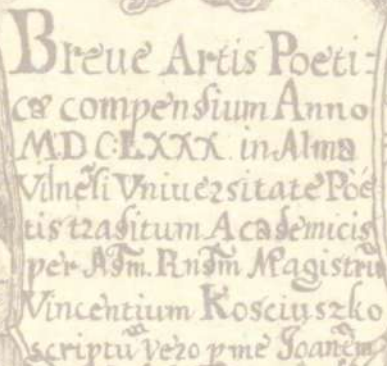 Breue Artis Poeti:
cæ compendium Anno
M.D.C.LXXX. in Alma
Vilnesi Vniuersitate Poë
tis traditum Academicis
per Adm. Rndm Magistru
Vincentium Kosciuszko
scriptu vero p me Joanem